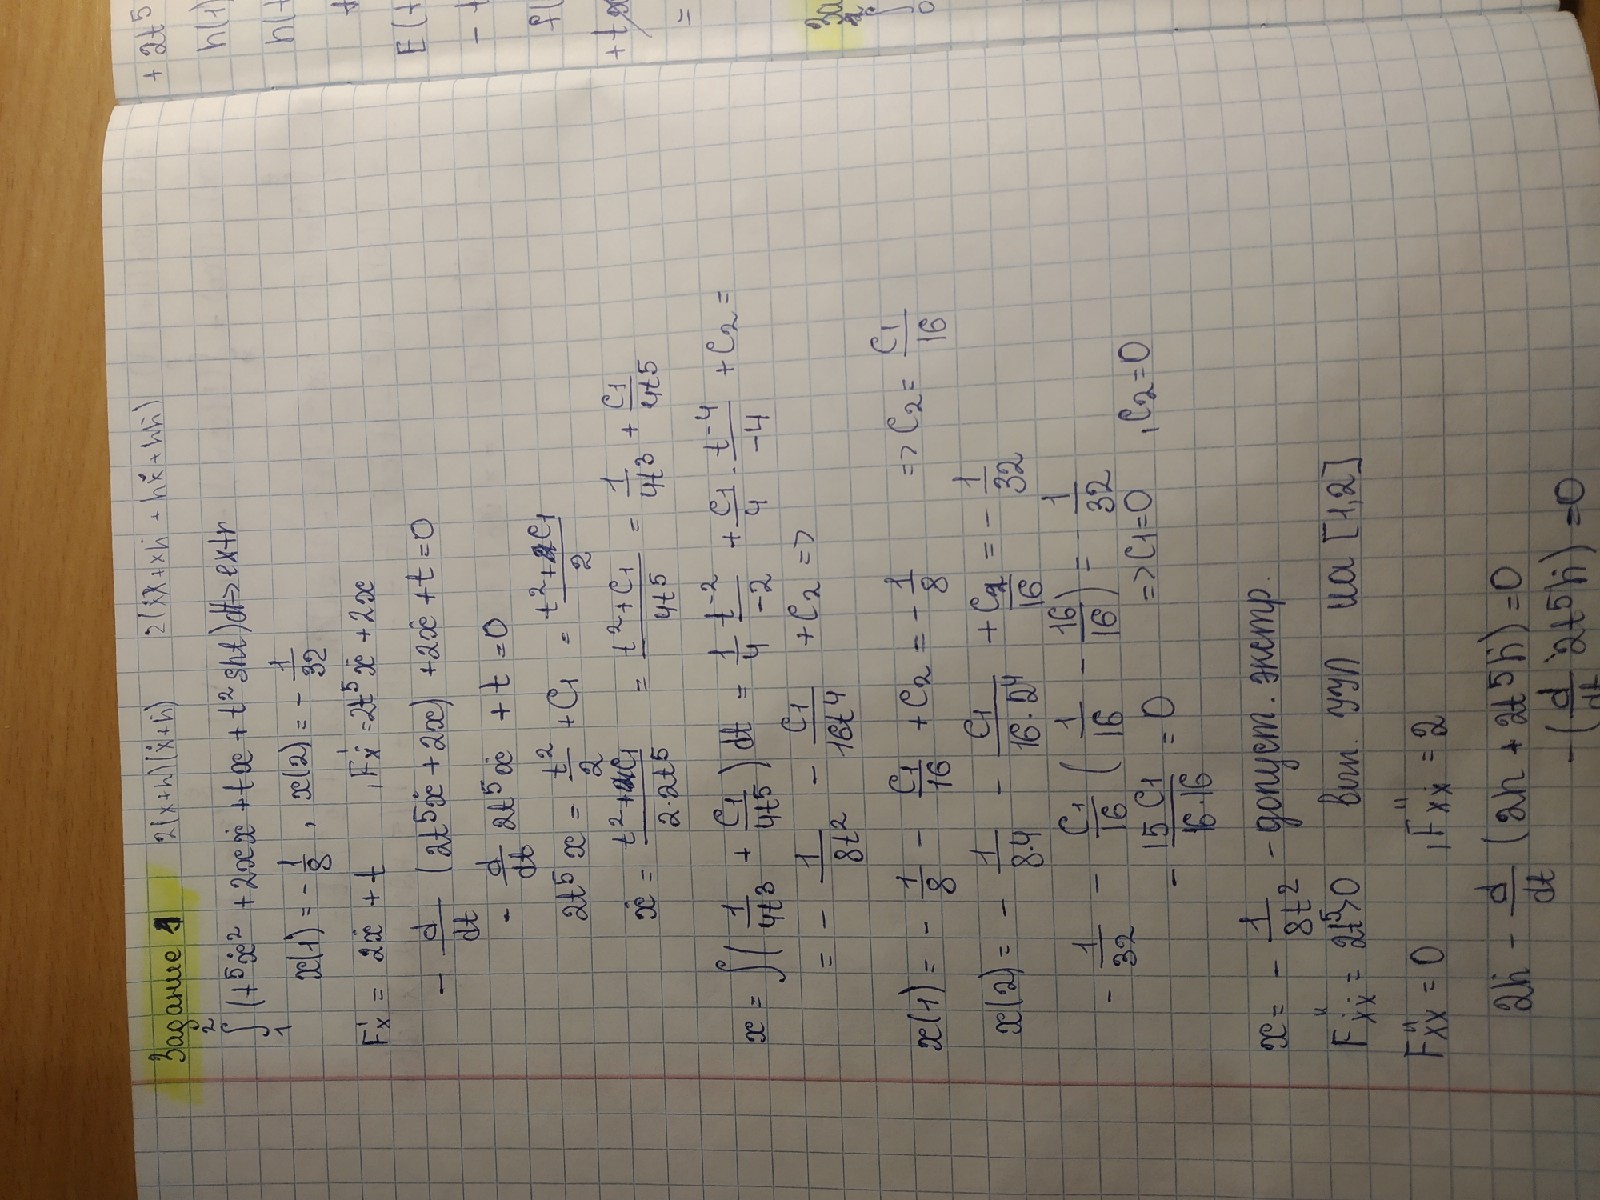 Задание 1
2(x+h)(ẋ+ḣ) 2(xẋ+xḣ + hẋ + hḣ)
∫₁² (t⁵ẋ² + 2xẋ + tx + t² sht)dt → extr
x(1) = -1/8, x(2) = -1/32
F'ₓ = 2ẋ + t , F'ẋ = 2t⁵ẋ + 2x
- d/dt (2t⁵ẋ + 2x) + 2ẋ + t = 0
- d/dt 2t⁵ẋ + t = 0
2t⁵ẋ = t²/2 + C₁ = (t² + C₁)/2
ẋ = (t² + C₁)/(2·2t⁵) = (t² + C₁)/(4t⁵) = 1/(4t³) + C₁/(4t⁵)
x = ∫(1/(4t³) + C₁/(4t⁵))dt = 1/4 t⁻²/-2 + C₁/4 · t⁻⁴/-4 + C₂ =
= - 1/(8t²) - C₁/(16t⁴) + C₂ =>
x(1) = - 1/8 - C₁/16 + C₂ = - 1/8 => C₂ = C₁/16
x(2) = - 1/(8·4) - C₁/(16·2⁴) + C₁/16 = - 1/32
- 1/32 - C₁/16 (1/16 - 16/16) = - 1/32
- 15C₁/(16·16) = 0 => C₁ = 0 , C₂ = 0
x = - 1/(8t²) - допуст. экстр.
F''ẋẋ = 2t⁵>0 вып. УУЛ на [1,2]
F''ₓₓ = 0 , F''ₓẋ = 2
2ḣ - d/dt (2h + 2t⁵ḣ) = 0
-(d/dt 2t⁵ḣ) = 0
+ 2t⁵
h(1)
E(t
- t
+t
=
За
0